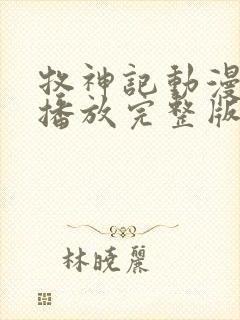 牧神記動漫
播放完整版
林曉麗